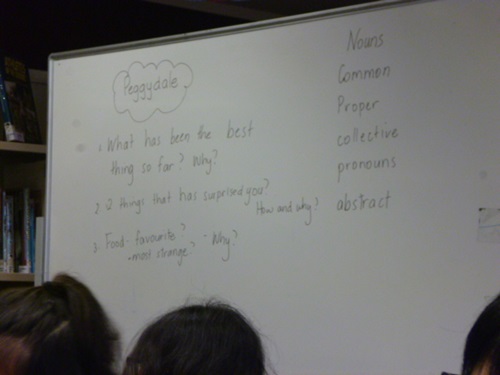 Peggydale
1. What has been the best
thing so far? Why?
2. 2 things that has surprised you?
How and why?
3. Food - favourite?
- most strange? - Why?
Nouns
Common
Proper
collective
pronouns
abstract